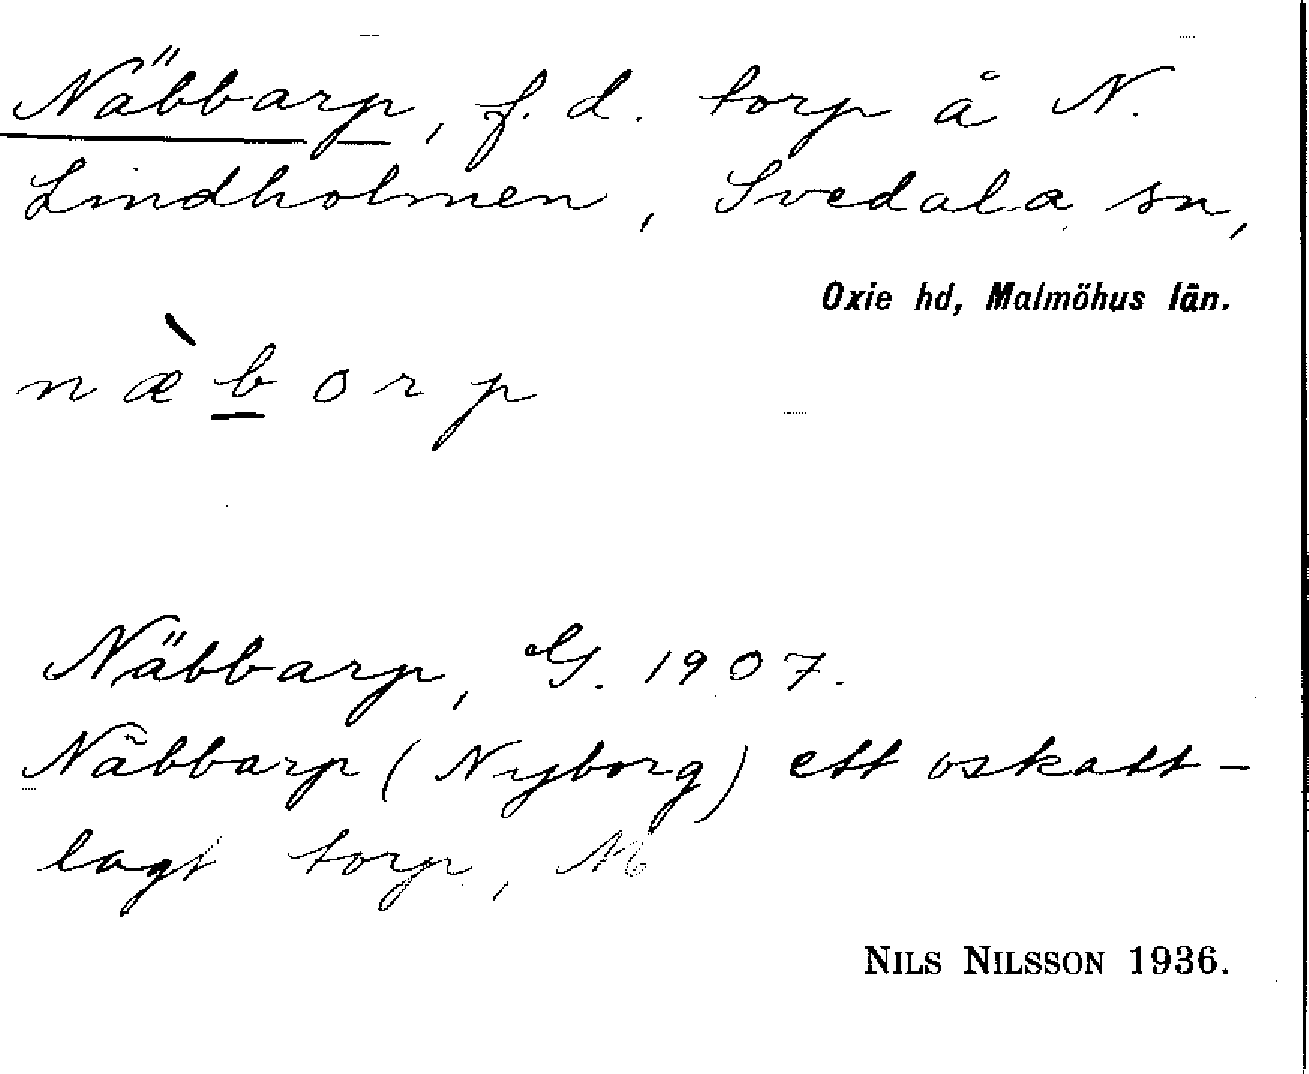 Näbbarp, f. d. torp å N.
Lindholmen, Svedala sn,
Oxie hd, Malmöhus län.
næ̀b̲orp
Näbbarp, G. 1907.
Näbbarp (Nyborg) ett oskatt-
lagt torp, M
NILS NILSSON 1936.